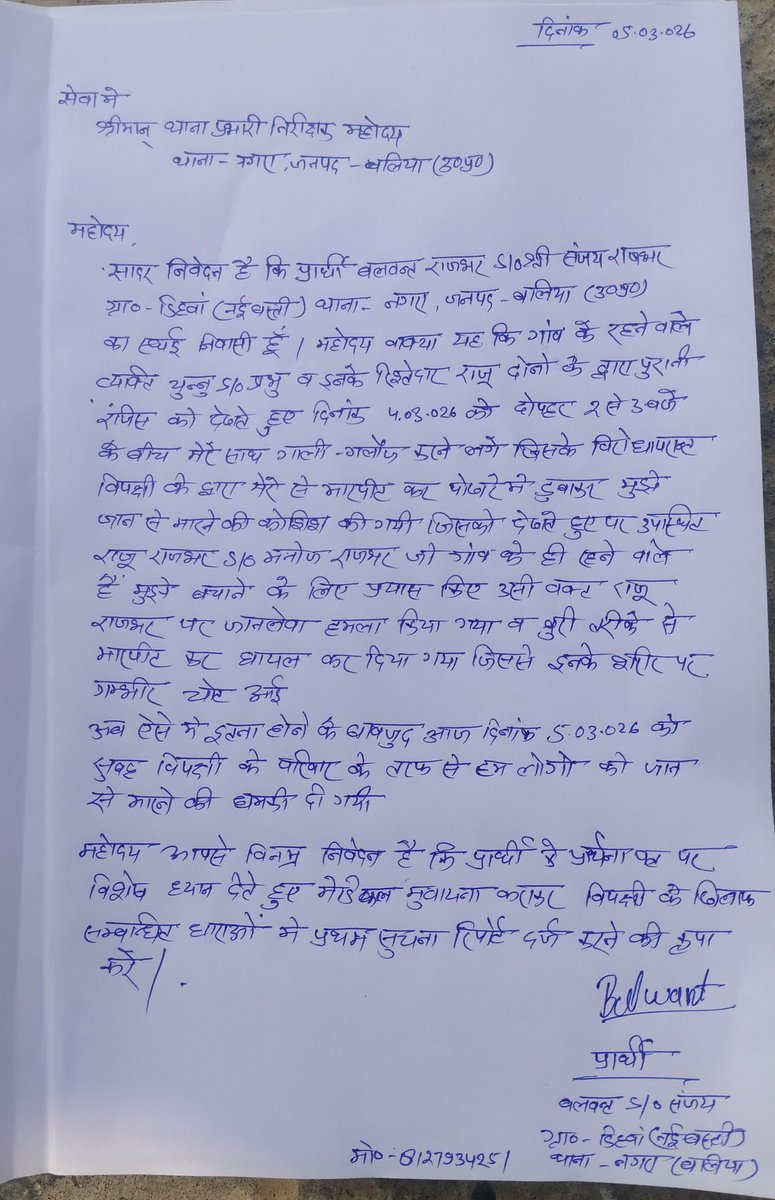 दिनांक 05.03.026
सेवा मे
श्रीमान् थाना प्रभारी निरीक्षक महोदय
थाना - नगरा, जनपद - बलिया (उ०प्र०)
महोदय,
सादर निवेदन है कि प्रार्थी बलवन्त राजभर S/o श्री संजय राजभर
ग्रा०- डिहवां (नई बस्ती) थाना - नगरा, जनपद - बलिया (उ०प्र०)
का स्थाई निवासी हूँ / महोदय वाक्या यह कि गांव के रहने वाले
व्यक्ति चुन्नु S/o प्रभु व इनके रिश्तेदार राजू दोनो के द्वारा पुरानी
रंजिस को देखते हुए दिनांक 4.03.026 को दोपहर 2 से 3 बजे
के बीच मेरे साथ गाली-गलौज करने लगे जिसके विरोध
विपक्षी के द्वारा मेरे से मारपीट कर पोखरे मे डुबाकर मुझे
जान से मारने की कोशिश की गयी जिसको देखते हुए पर उपस्थित
राजू राजभर S/o मनोज राजभर जो गांव के ही रहने वाले
हैं मुझे बचाने के लिए प्रयास किए उसी वक्त राजू
राजभर पर जानलेवा हमला किया गया व बुरी तरीके से
मारपीट कर घायल कर दिया गया जिससे इनके शरीर पर
गम्भीर चोट आई
अब ऐसे मे इतना होने के बावजुद आज दिनांक 5.03.026 को
सुबह विपक्षी के परिवार के तरफ से हम लोगो को जान
से मारने की धमकी दी गयी
महोदय आपसे विनम्र निवेदन है कि प्रार्थी के प्रार्थना पत्र पर
विशेष ध्यान देते हुए मेडिकल मुवायना कराकर विपक्षी के खिलाफ
सम्बन्धित धाराओं मे प्रथम सुचना रिपोर्ट दर्ज करने की कृपा
करे / .
Balwant
प्रार्थी
बलवन्त S/o संजय
ग्रा०- डिहवां (नई बस्ती)
थाना - नगरा (बलिया)
मो०-